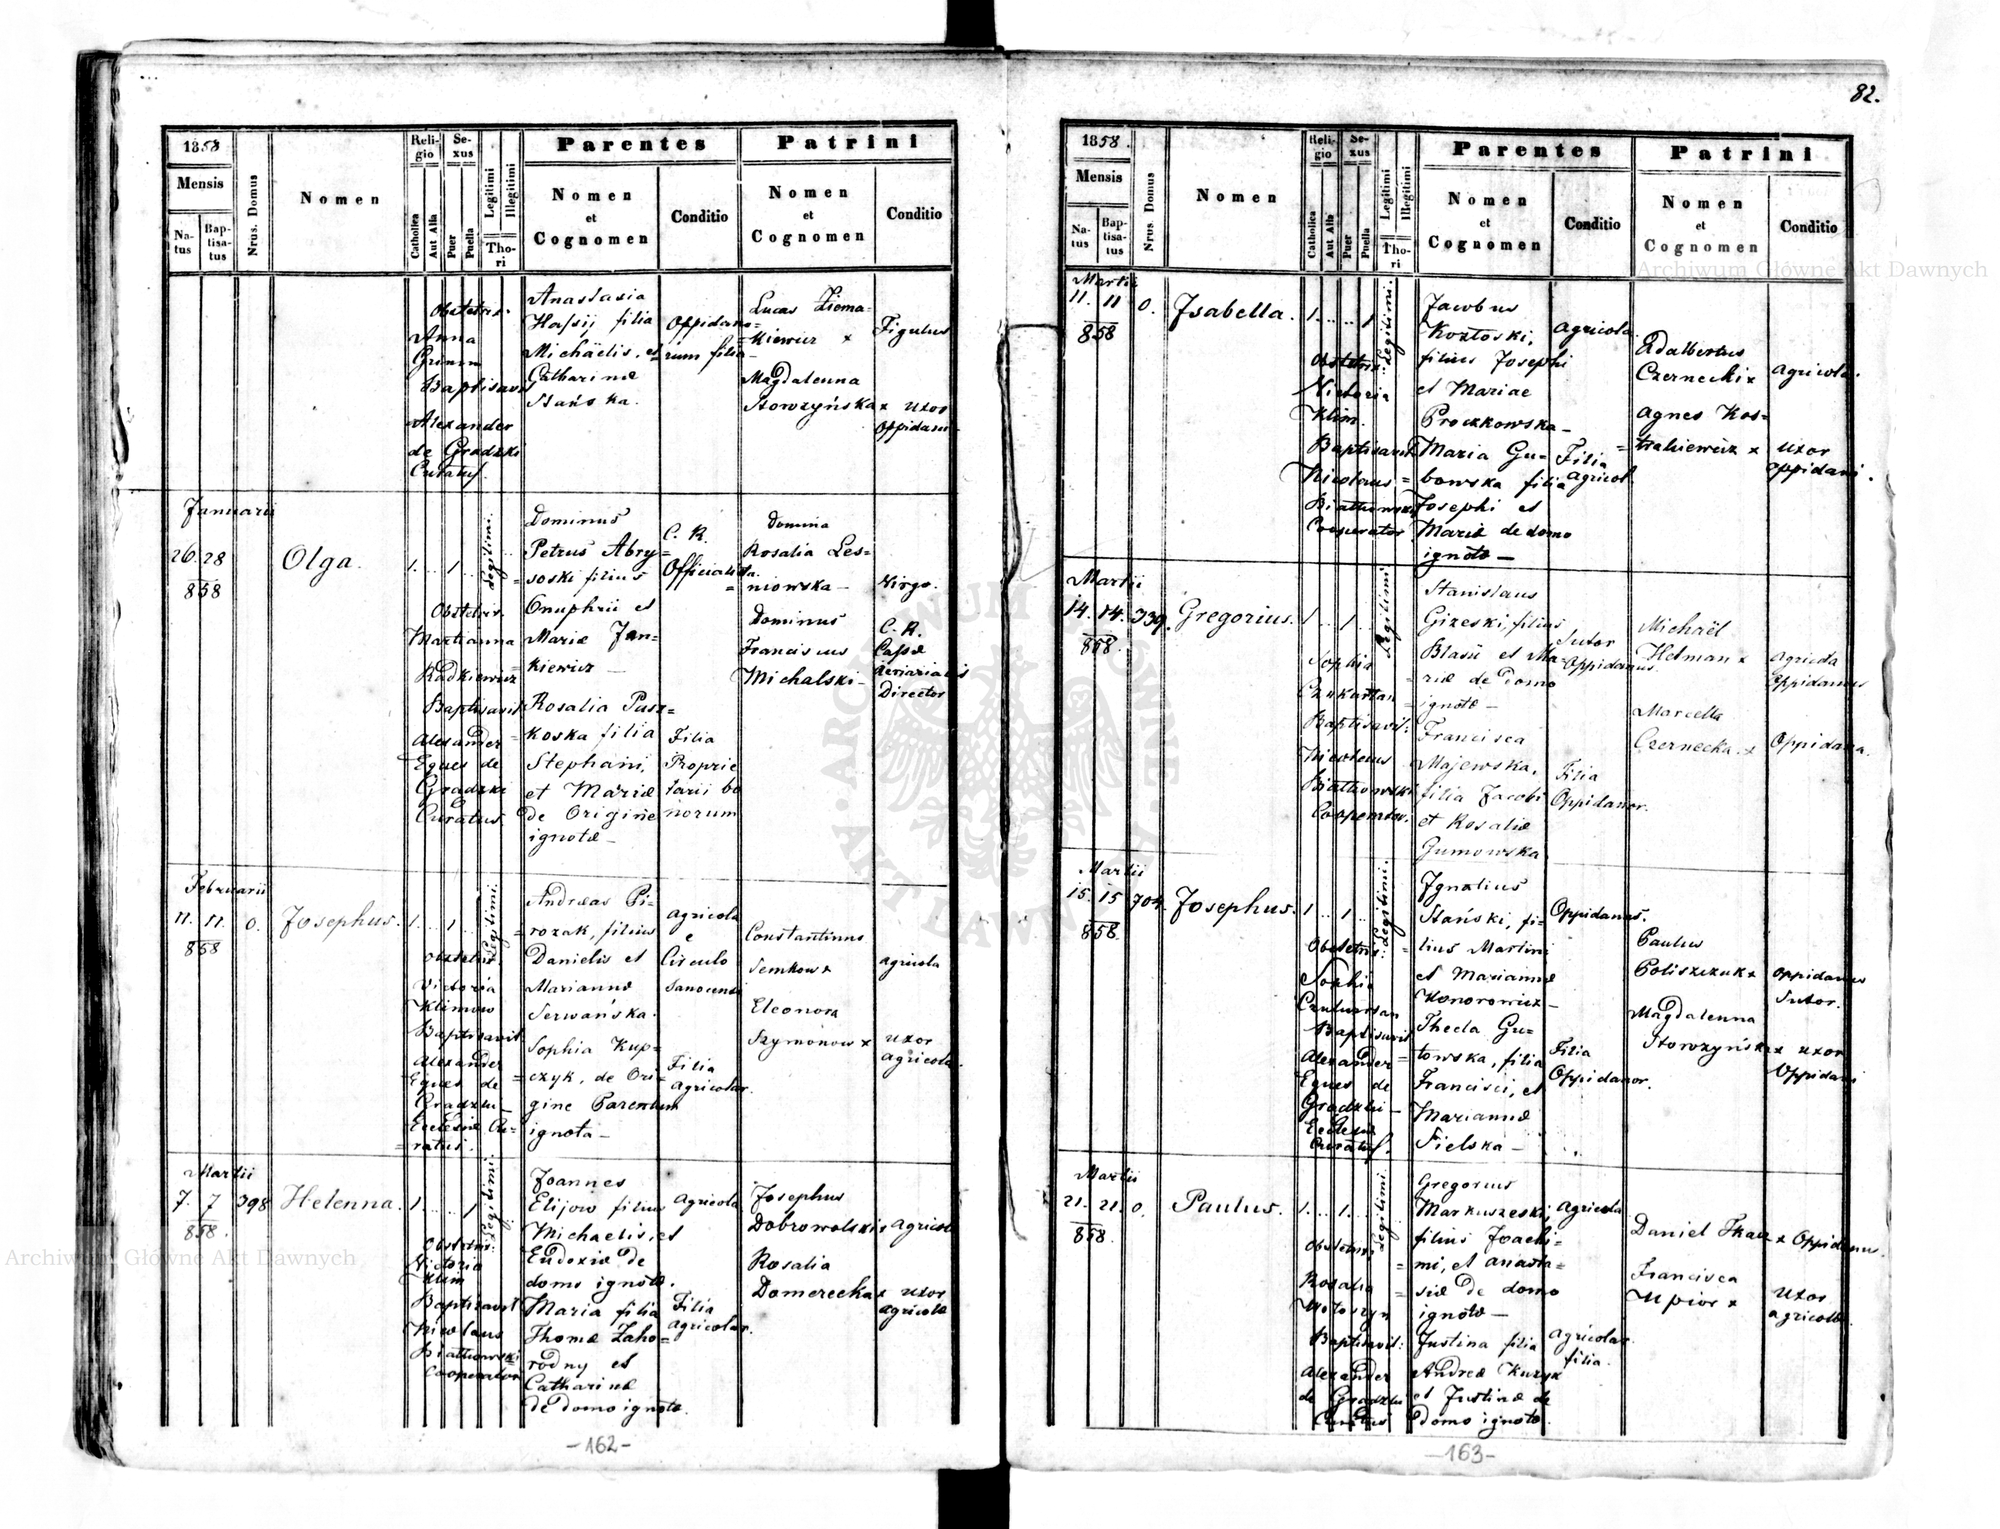 82.
1858
Mensis
Na-
tus
Bap-
tisa-
tus
Nrus. Domus
Nomen
Reli-
gio
Catholica
Aut Alia
Se-
xus
Puer
Puella
Legitimi
Illegitimi
Tho-
ri
Parentes
Nomen
et
Cognomen
Conditio
Patrini
Nomen
et
Cognomen
Conditio
Obstetrix
Anna
Grimm
Baptisavit
Alexander
de Gradzki
Curatus
Anastasia
filia
Michäelis, et
Catharinæ
Stańska.
Oppidano=
rum filia
Lucas Ziema=
kiewicz x
Figulus
Magdalenna
Stowzyńska x uxor
Oppidani
Januarii
26. 28
858
Olga.
1. 1.
Legitimi.
Obstetrix.
Marianna
Radkiewicz
Baptisavit
Alexander
Eques de
Gradzki
Curatus.
Dominus
Petrus Abry=
soski filius
Onuphrii et
Mariæ Jan=
kiewicz —
Rosalia Pasz=
koska filia
Stephani,
et Mariæ
de Origine
ignotæ —
C. R.
Officialista.
Filia
Proprie
tarii bo
norum
Domina
Rosalia Les=
niowska —
Virgo.
Dominus
Franciscus
Michalski —
C. R.
Cassæ
Director
Februarii
11. 11 0. Josephus. 1. 1.
858
Legitimi.
Obstetrix.
Victoria
Klimow
Baptisavit
Alexander
Eques de
Gradzki —
Ecclesiæ Cu=
ratus.
Andreas Pi=
rozak, filius
Danielis et
Mariannæ
Serwańska.
Sophia Kup=
czyk, de Ori=
gine Parentum
ignota —
Agricola
e
Circulo
Sanocensi
Filia
agricolar.
Constantinus
Semkow x
agricola
Eleonora
Szymonow x
uxor
agricolæ
Martii
7. 7 398 Helenna. 1. 1
858.
Legitimi.
Obstetrix
Victoria
Klim
Baptisavit
Nicolaus
Białkowski
Cooperator
Joannes
Elijow filius
Michaelis, et
Eudoxiæ de
domo ignotæ.
Maria filia
Thomæ Zaho=
rodny et
Catharinæ
de domo ignotæ.
Agricola
Filia
agricolar.
Josephus
Dobrowolski x agricola
Rosalia
Domerecka x uxor
agricolæ
-162-
1858.
Mensis
Na-
tus
Bap-
tisa-
tus
Nrus. Domus
Nomen
Reli-
gio
Catholica
Aut Alia
Se-
xus
Puer
Puella
Legitimi
Illegitimi
Tho-
ri
Parentes
Nomen
et
Cognomen
Conditio
Patrini
Nomen
et
Cognomen
Conditio
Martii
11. 11 0. Isabella. 1. 1
858
Legitimi.
Obstetrix
Victoria
Klim.
Baptisavit
Nicolaus
Białkowski
Cooperator
Jacobus
Kozłoski,
filius Josephi
et Mariae
Proczkowska —
Maria Gu=
bowska filia
Josephi et
Mariæ de domo
ignotæ —
Agricola
Filia
Agricol.
Adalbertus
Czernecki x
agricola.
Agnes Kos=
trakiewicz x
uxor
oppidani.
Martii
14. 14. 339. Gregorius. 1. 1.
858.
Legitimi
Sophia
Czukurtan
Baptisavit:
Nicolaus
Białkowski
Cooperator.
Stanislaus
Gizeski, filius
Blasii et Ma=
riæ de domo
ignotæ —
Francisca
Majewska,
filia Jacobi
et Rosaliæ
Gumowska
Sutor
Oppidanus.
Filia
Oppidanor.
Michaël
Hetman x
Agricola
Oppidanus
Marcella
Czernecka. x Oppidana.
Martii
15. 15 704. Josephus. 1. 1.
858.
Legitimi.
Obstetrix
Sophia
Czukurtan
Baptisavit
Alexander
Eques de
Gradzki —
Ecclesiæ
Curatus.
Ignatius
Stański, fi=
lius Martini
et Mariannæ
Konorowicz —
Thecla Gu=
towska, filia
Francisci, et
Mariannæ
Sielska —
Oppidanus.
Filia
Oppidanor.
Paulus
Poliszczuk x
oppidanus
Sutor.
Magdalenna
Stowzyńska x uxor
Oppidani
Martii
21. 21. 0. Paulus. 1. 1.
858.
Legitimi.
Obstetrix
Rosalia
Wotoszyn
Baptisavit:
Alexander
de Gradzki
Curatus
Gregorius
Markuszeski,
filius Joachi=
mi, et Anasta=
siæ de domo
ignotæ —
Justina filia
Andreæ Kuzyk
et Justinæ de
domo ignotæ.
Agricola
Agricolar.
filia.
Daniel Tkacz x Oppidanus.
Francisca
Upior x
Uxor
agricolæ.
-163-
Archiwum Główne Akt Dawnych
Archiwum Główne Akt Dawnych
ARCHIWUM GŁÓWNE AKT DAWNYCH